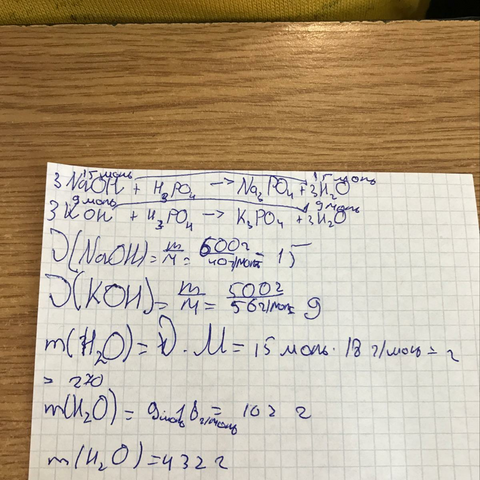 15 моль 15 моль
3NaOH + H₃PO₄ → Na₃PO₄ + 3H₂O
9 моль 9 моль
3KOH + H₃PO₄ → K₃PO₄ + 3H₂O
ν(NaOH) = m/M = 600г/40г/моль = 15
ν(KOH) = m/M = 500г/56г/моль 9
m(H₂O) = ν · M = 15 моль · 18 г/моль = г
= 270
m(H₂O) = 9моль · 18г/моль = 162 г
m(H₂O) = 432 г